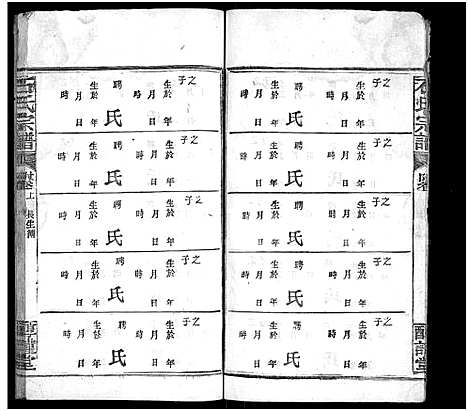 石氏宗譜
之子
生於 年
月 日
時
聘 氏
生於 年
月 日
時
之子
生於 年
月 日
時
聘 氏
生於 年
月 日
時
之子
生於 年
月 日
時
聘 氏
生於 年
月 日
時
之子
生於 年
月 日
時
聘 氏
生於 年
月 日
時
之子
生於 年
月 日
時
聘 氏
生於 年
月 日
時
之子
生於 年
月 日
時
聘 氏
生於 年
月 日
時
之子
生於 年
月 日
時
聘 氏
生於 年
月 日
時
之子
生於 年
月 日
時
聘 氏
生於 年
月 日
時
之子
生於 年
月 日
時
聘 氏
生於 年
月 日
時
之子
生於 年
月 日
時
聘 氏
生於 年
月 日
時
石氏宗譜
上 長生簿